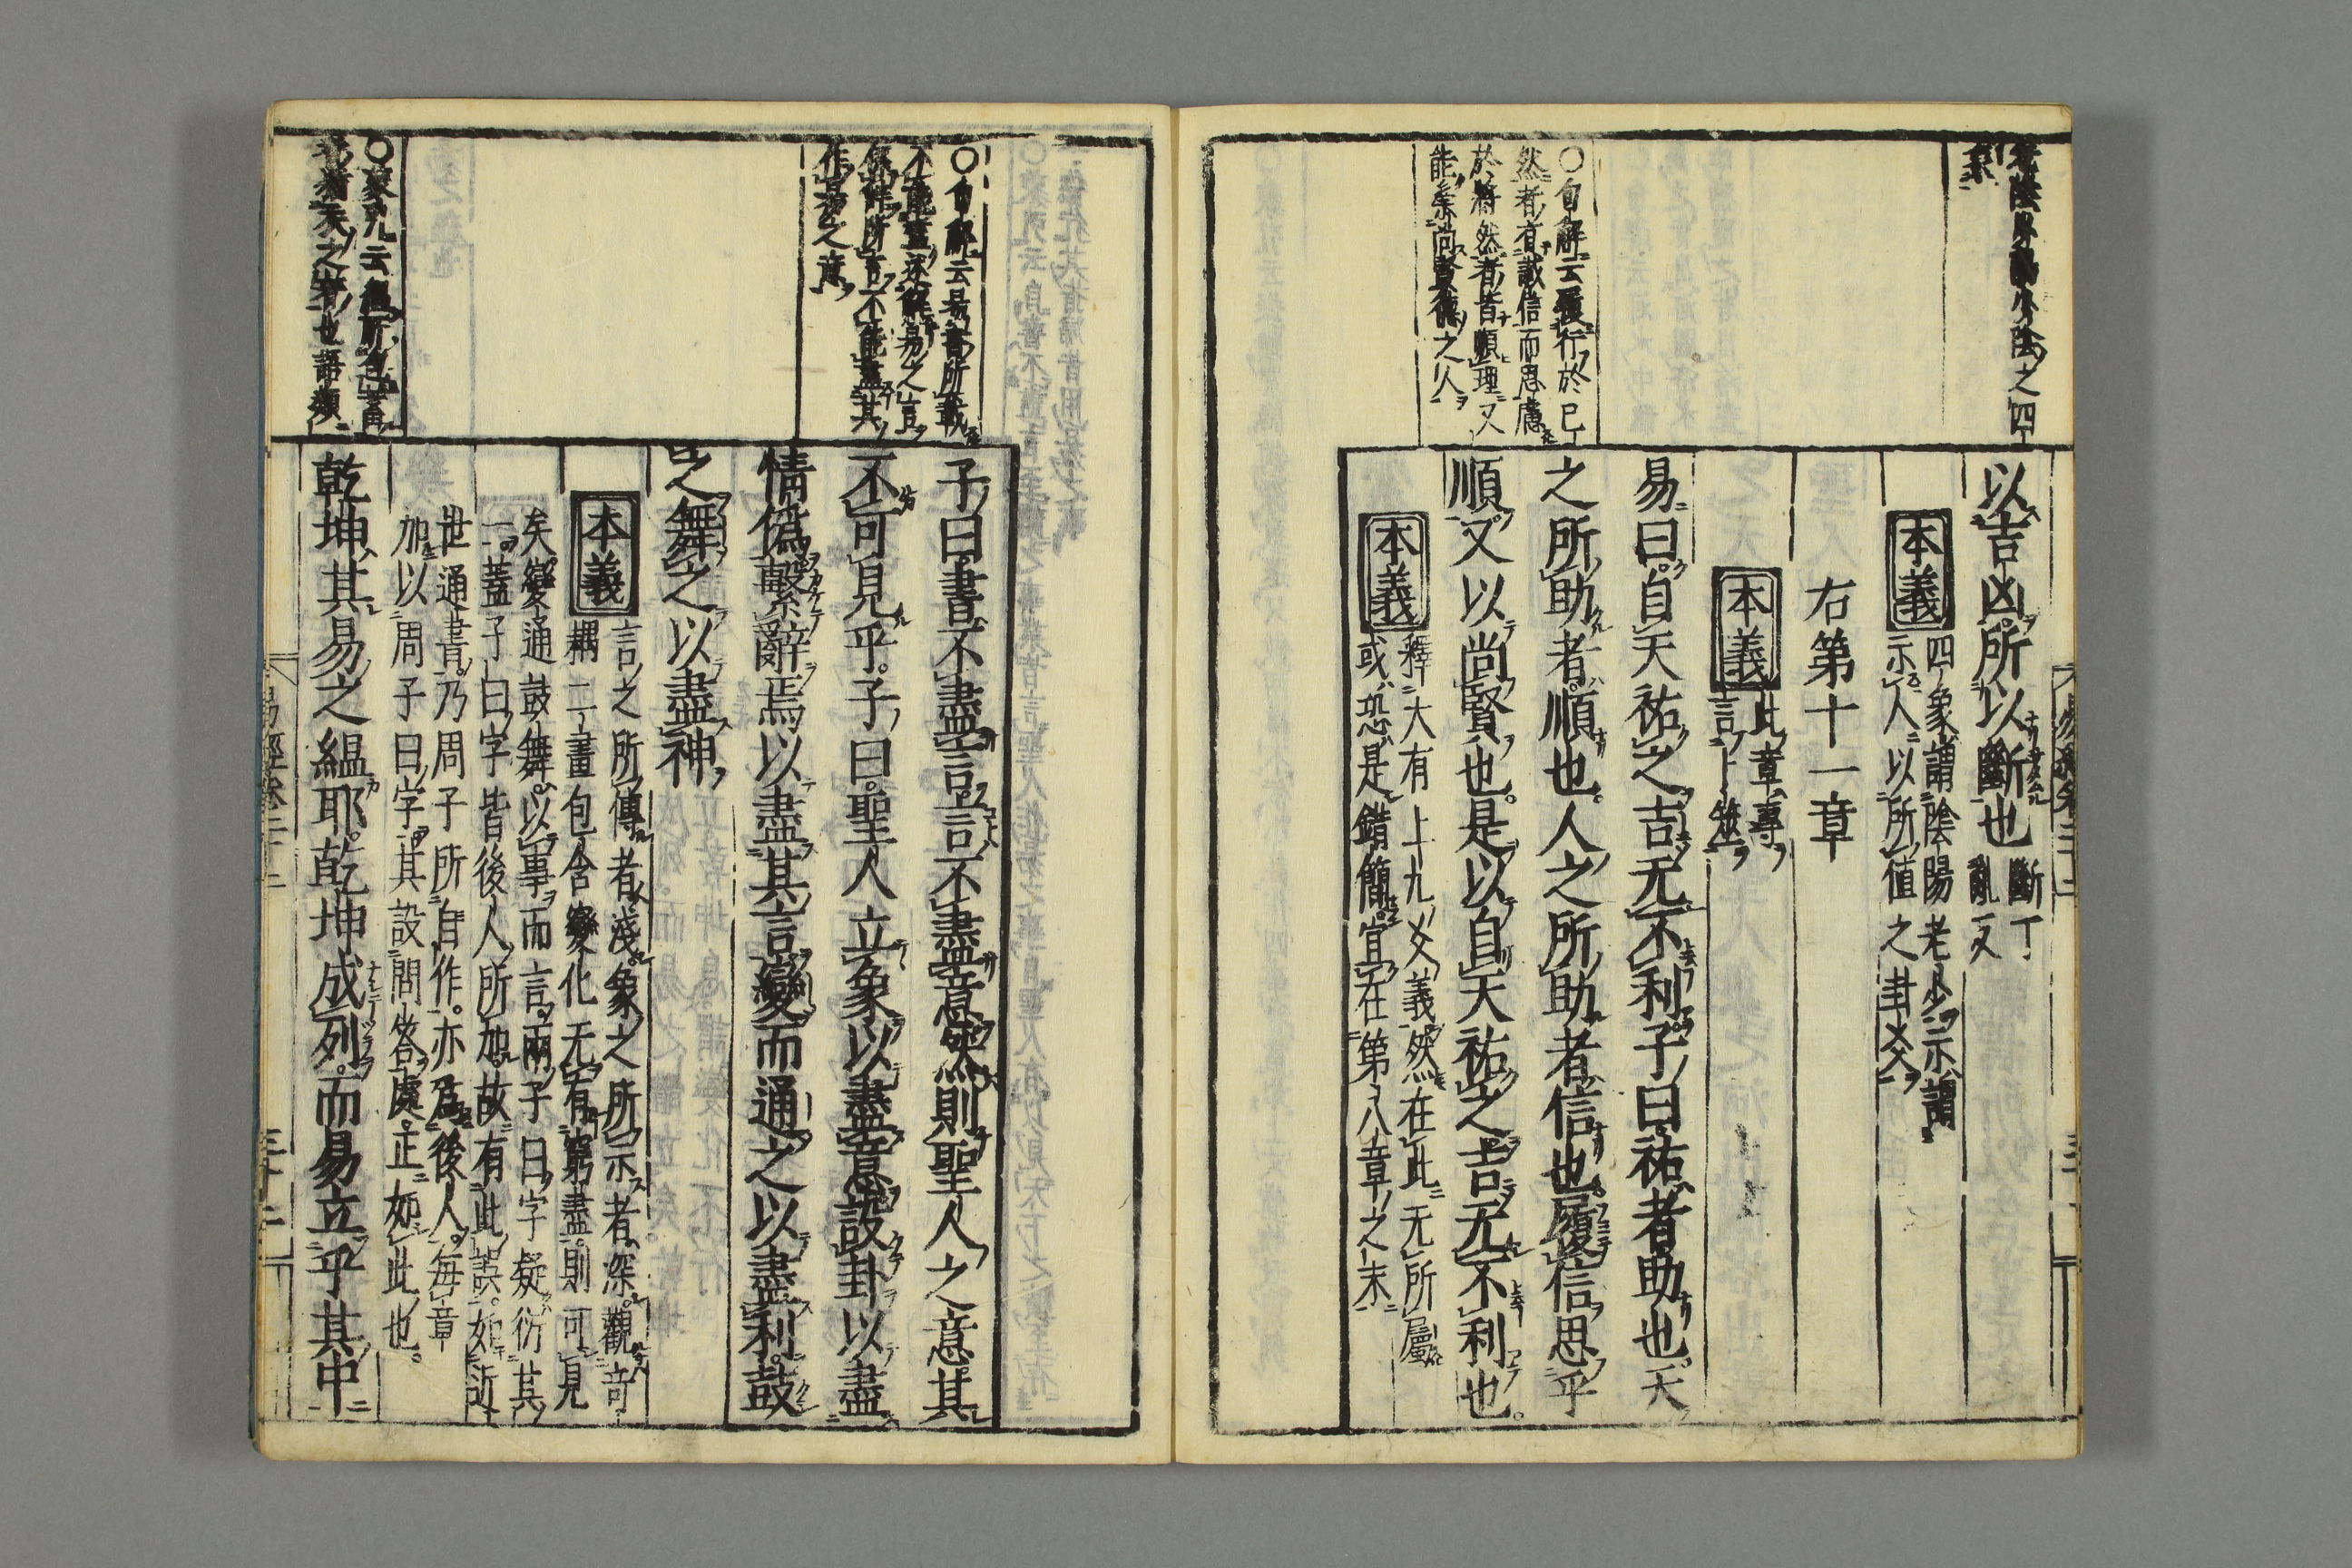 以吉凶所以斷也斷丁
亂反
本義
四象謂陰陽老少示謂
示人以所值之卦爻
右第十一章
本義
此章專
言卜筮
易曰自天祐之吉无不利子曰祐者助也天
之所助者順也人之所助者信也履信思乎
順又以尚賢也是以自天祐之吉无不利也
本義
釋大有上九爻義然在此无所屬
或恐是錯簡宜在第八章之末
老陰 少陰之四
象
〇句解云履行於已
然者有誠信而思慮
於將然者皆順理又
能系尚賢德之人
子曰書不盡言言不盡意然則聖人之意其
不可見乎子曰聖人立象以盡意設卦以盡
情偽繫辭焉以盡其言變而通之以盡利鼓
之舞之以盡神
本義
言之所傳者淺象之所示者深觀奇
耦二畫包含變化无有窮盡則可見
矣變通鼓舞以事而言兩子曰字疑衍其
一蓋子曰字皆後人所加故有此誤如近
世通書乃周子所自作亦為後人每章
加以周子曰字其設問答處正如此也
乾坤其易之緼耶乾坤成列而易立乎其中
〇句解云易書所載
不能盡 解易之言
所言不能盡其
作易之意
〇蒙引云緼所包蓄
者猶衣之著也語類
易經卷二十二
三十二